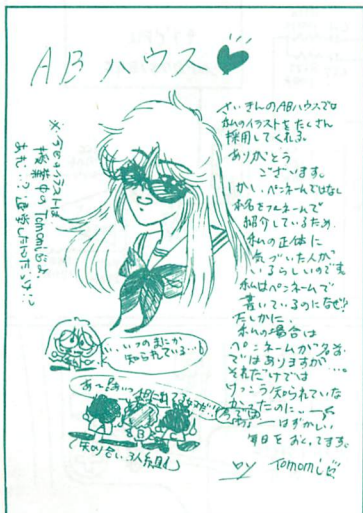 ABハウス
さいきんのABハウスでは
私のイラストをたくさん
採用してくれる。
ありがとう
ございます。
しかし、ペンネームではなし
本名をフルネームで
紹介しているため、
私の正体に
気づいた人が
いるらしいのです
私はペンネームで
書いているのになぜ?
たしかに、
私の場合は
ペンネームが名前
ではありますが…。
それだけでは
けっこう知られていな
かったのに…
はずかしい
毎日をおくってます。
by Tomomi
※今日のイラストは
授業中のTomomiだよ
あれ…?
いつのまにか
知られている…
あ〜
3人組